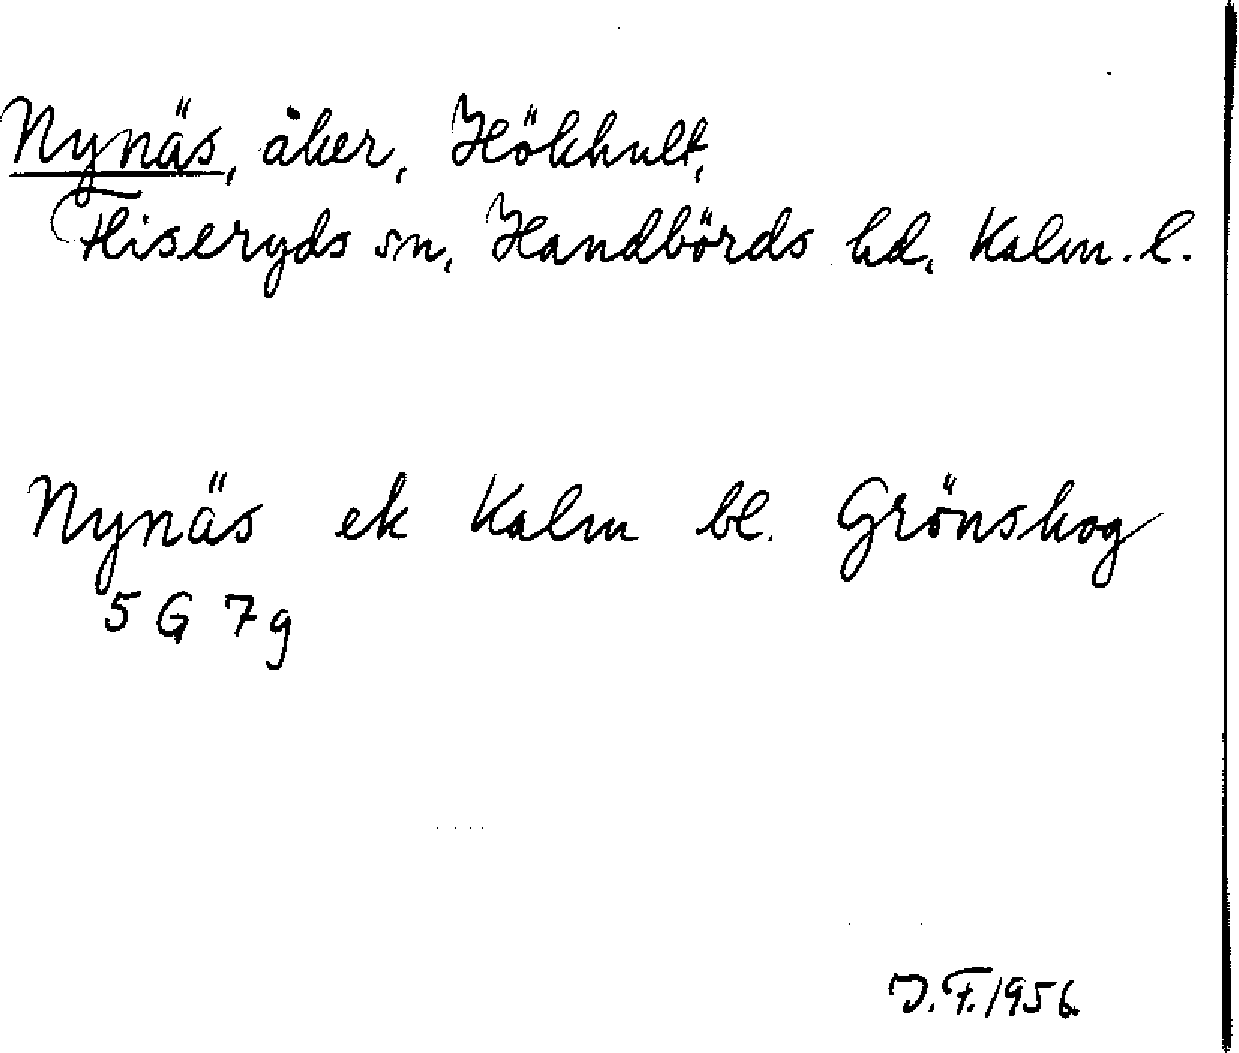 Nynäs, åker, Hökhult,
Fliseryds sn, Handbörds hd, Kalm. l.
Nynäs ek Kalm bl. Grönskog
5 G 7 g
J. F. 1956